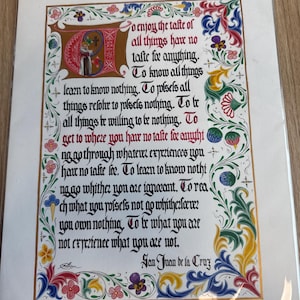 To enjoy the taste of
all things have no
taste for anything.
To know all things
learn to know nothing. To possess all
things resolve to possess nothing. To be
all things be willing to be nothing. To
get to where you have no taste for anythi
ng go through whatever experiences you
have no taste for. To learn to know nothi
ng go whither you are ignorant. To rea
ch what you possess not go whithersoever
you own nothing. To be what you are
not experience what you are not.
San Juan de la Cruz